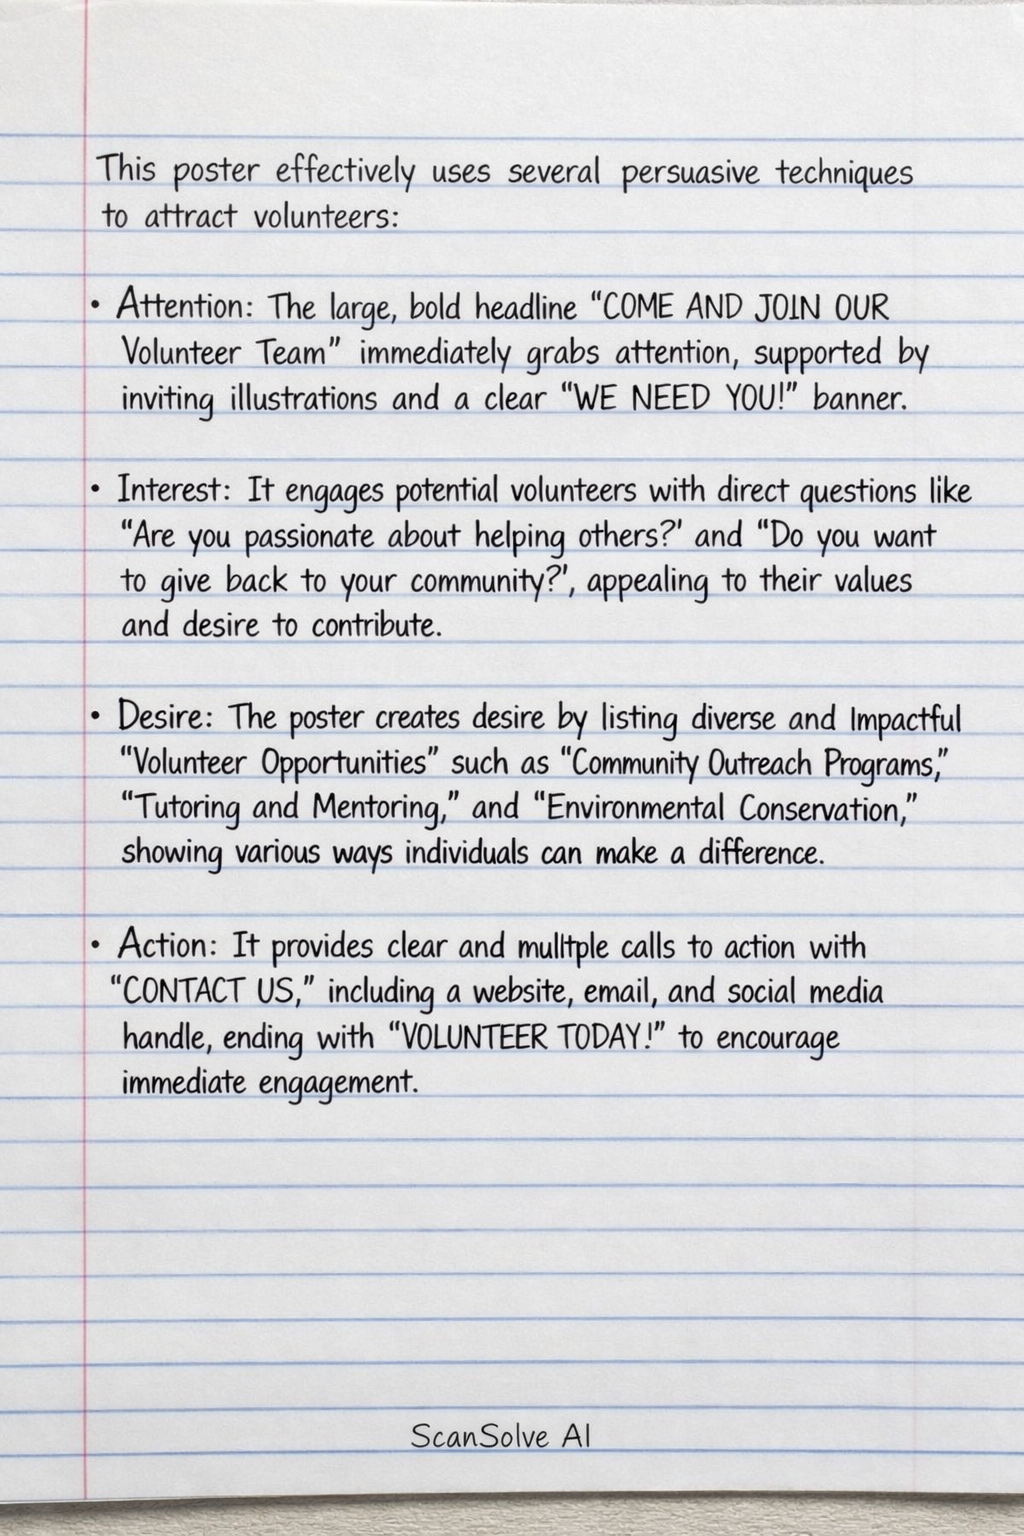 This poster effectively uses several persuasive techniques
to attract volunteers:
• Attention: The large, bold headline “COME AND JOIN OUR
Volunteer Team” immediately grabs attention, supported by
inviting illustrations and a clear “WE NEED YOU!” banner.
• Interest: It engages potential volunteers with direct questions like
“Are you passionate about helping others?' and “Do you want
to give back to your community?', appealing to their values
and desire to contribute.
• Desire: The poster creates desire by listing diverse and Impactful
“Volunteer Opportunities” such as “Community Outreach Programs,”
“Tutoring and Mentoring,” and “Environmental Conservation,”
showing various ways individuals can make a difference.
• Action: It provides clear and mulltple calls to action with
“CONTACT US,” including a website, email, and social media
handle, ending with “VOLUNTEER TODAY!” to encourage
immediate engagement.
ScanSolve AI